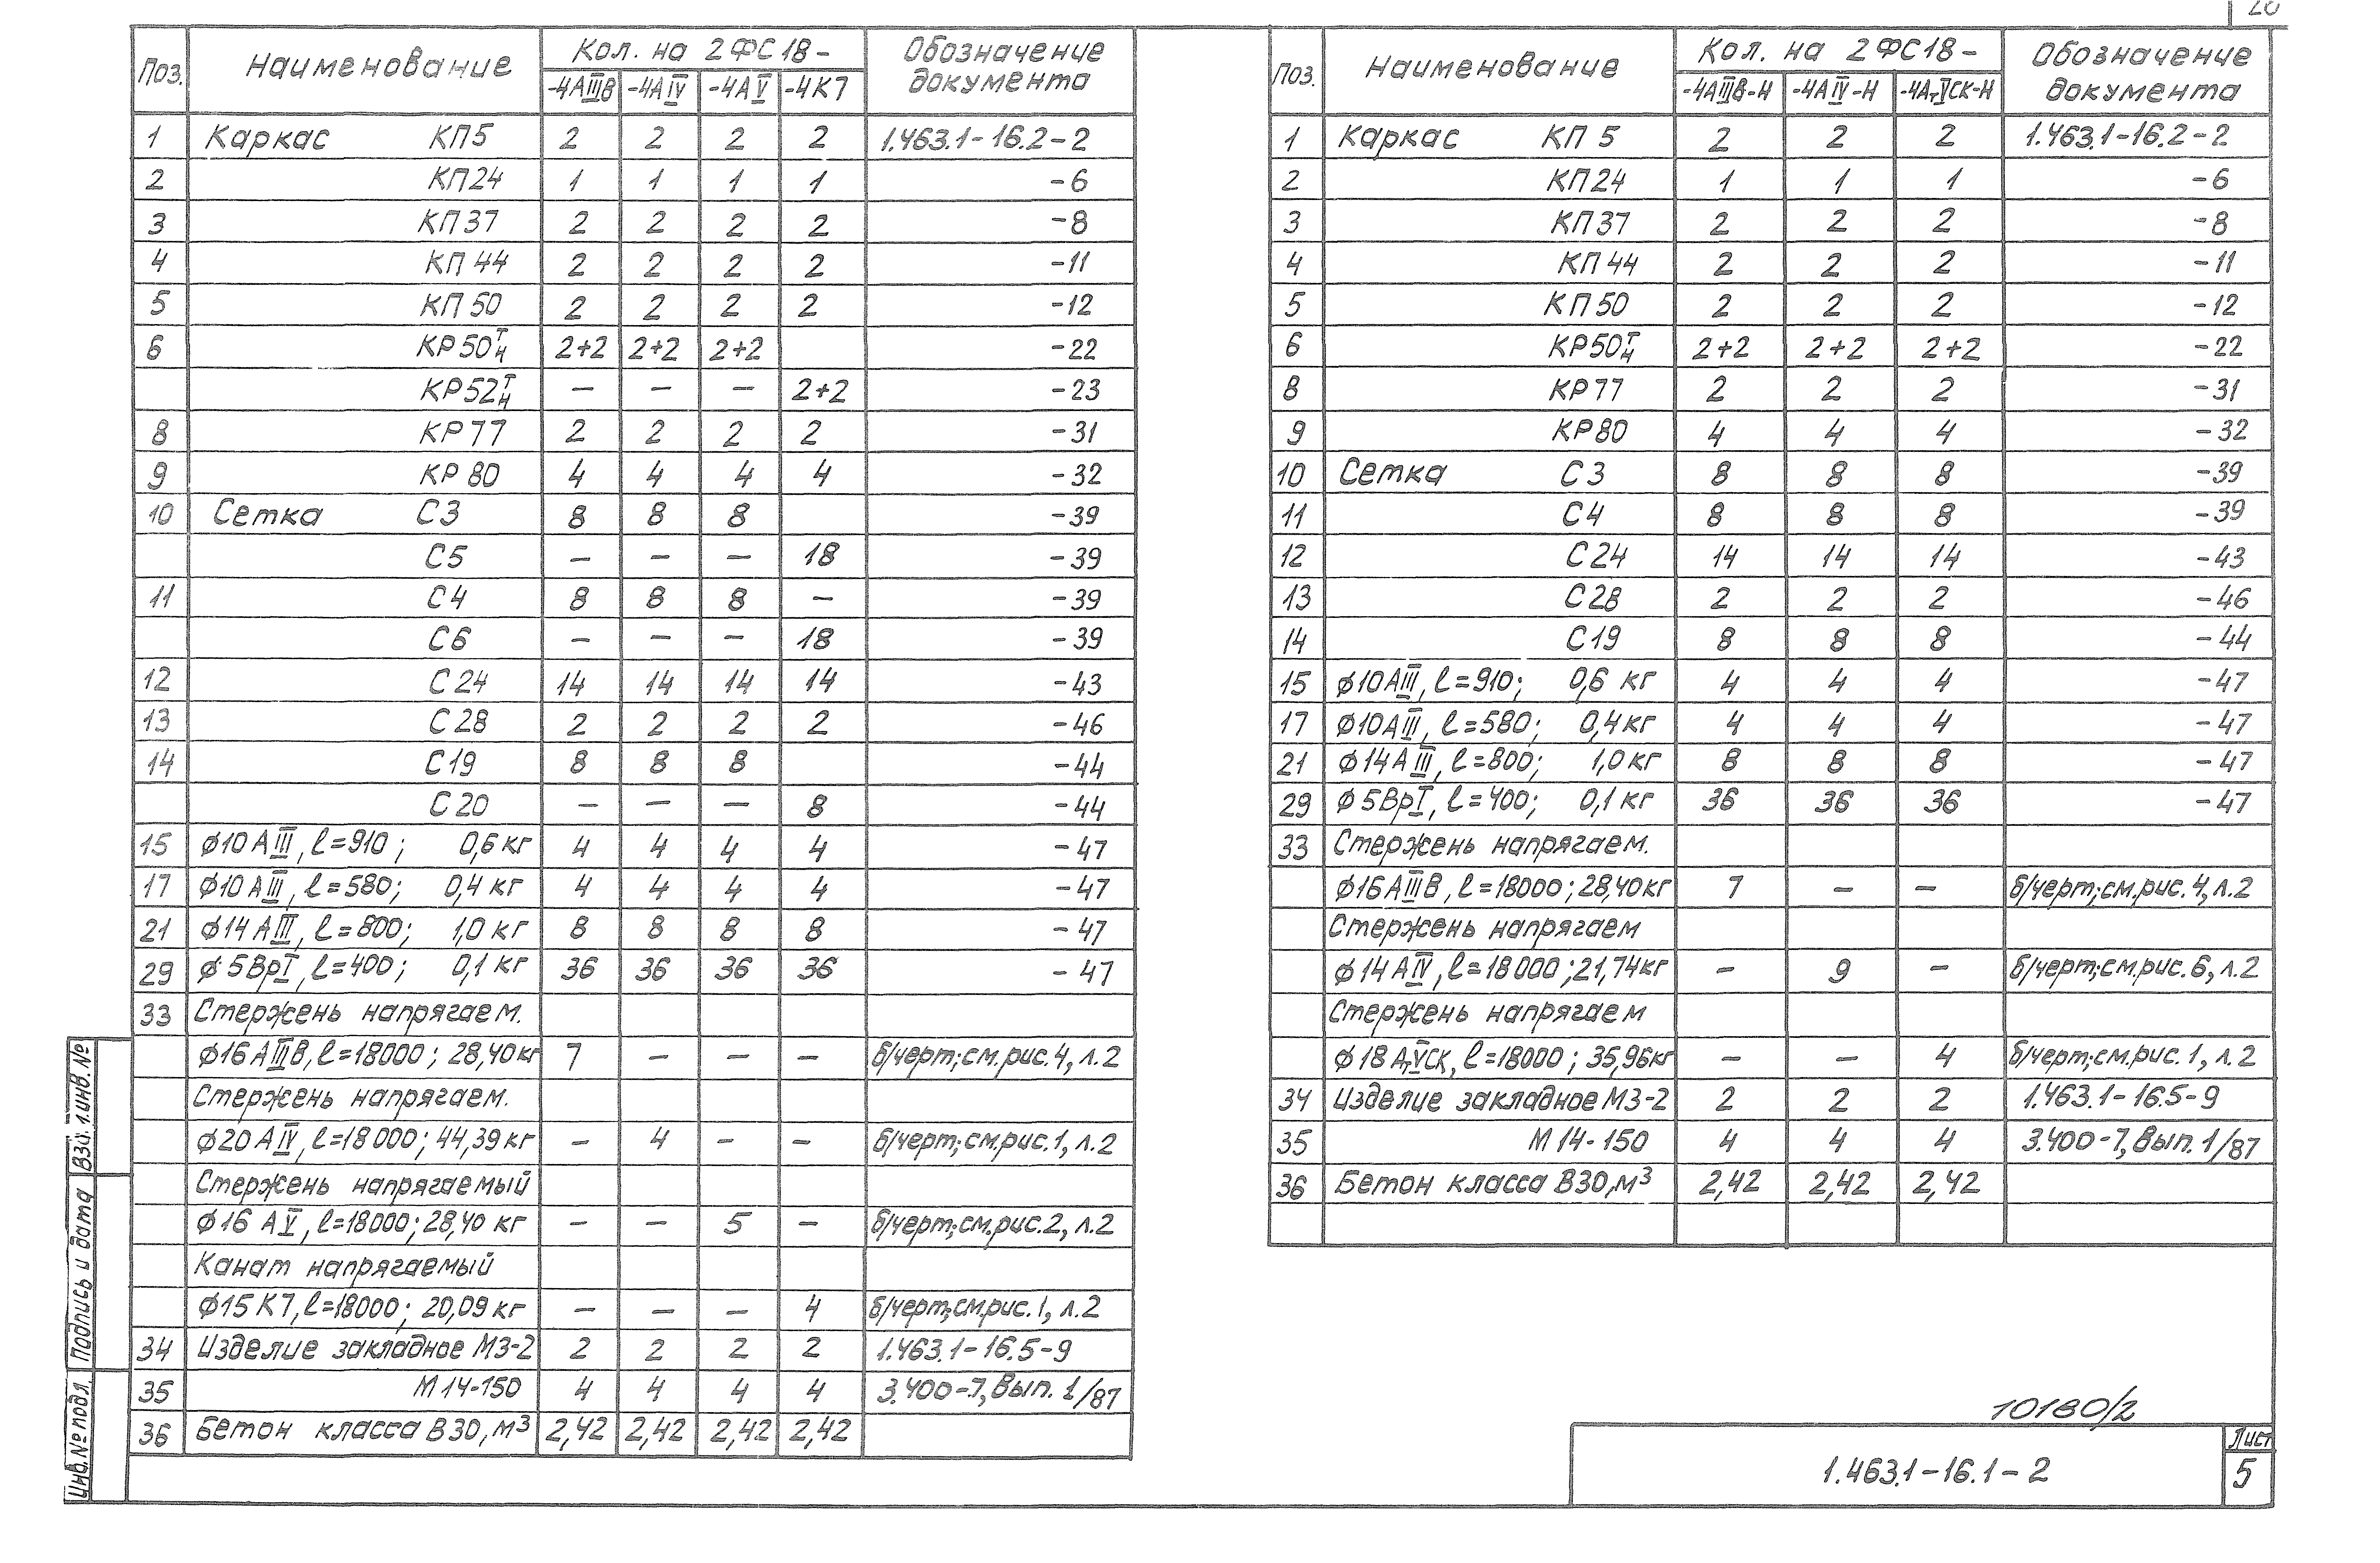 Поз. Наименование Кол. на 2ФС18- Обозначение документа
-4АIIIв -4АIV -4АV -4К7
1 Каркас КП5 2 2 2 2 1.463.1-16.2-2
2 КП24 1 1 1 1 -6
3 КП37 2 2 2 2 -8
4 КП44 2 2 2 2 -11
5 КП50 2 2 2 2 -12
6 КР50Т/Н 2+2 2+2 2+2 -22
КР52Т/Н — — — 2+2 -23
8 КР77 2 2 2 2 -31
9 КР80 4 4 4 4 -32
10 Сетка С3 8 8 8 -39
С5 — — — 18 -39
11 С4 8 8 8 — -39
С6 — — — 18 -39
12 С24 14 14 14 14 -43
13 С28 2 2 2 2 -46
14 С19 8 8 8 -44
С20 — — — 8 -44
15 ϕ10АIII, ℓ=910; 0,6кг 4 4 4 4 -47
17 ϕ10АIII, ℓ=580; 0,4 кг 4 4 4 4 -47
21 ϕ14АIII, ℓ=800; 1,0 кг 8 8 8 8 -47
29 ϕ5ВрI, ℓ=400; 0,1 кг 36 36 36 36 -47
33 Стержень напрягаем.
ϕ16АIIIв, ℓ=18000; 28,40кг 7 — — — б/черт; см.рис.4, л.2
Стержень напрягаем.
ϕ20АIV, ℓ=18000; 44,39кг — 4 — — б/черт; см.рис.1, л.2
Стержень напрягаемый
ϕ16 АV, ℓ=18000; 28,40 кг — — 5 — б/черт; см.рис.2, л.2
Канат напрягаемый
ϕ15К7, ℓ=18000; 20,09 кг — — — 4 б/черт; см.рис.1, л.2
34 Изделие закладное МЗ-2 2 2 2 2 1.463.1-16.5-9
35 М14-150 4 4 4 4 3.400-7, Вып. 1/87
36 Бетон класса В30, м³ 2,42 2,42 2,42 2,42
Поз. Наименование Кол. на 2ФС18- Обозначение документа
-4АIIIв-Н -4АIV-Н -4АтVСК-Н
1 Каркас КП 5 2 2 2 1.463.1-16.2-2
2 КП24 1 1 1 -6
3 КП37 2 2 2 -8
4 КП44 2 2 2 -11
5 КП50 2 2 2 -12
6 КР50Т/Н 2+2 2+2 2+2 -22
8 КР77 2 2 2 -31
9 КР80 4 4 4 -32
10 Сетка С3 8 8 8 -39
11 С4 8 8 8 -39
12 С24 14 14 14 -43
13 С28 2 2 2 -46
14 С19 8 8 8 -44
15 ϕ10АIII, ℓ=910; 0,6 кг 4 4 4 -47
17 ϕ10АIII, ℓ=580; 0,4кг 4 4 4 -47
21 ϕ14АIII, ℓ=800; 1,0кг 8 8 8 -47
29 ϕ5ВрI, ℓ=400; 0,1 кг 36 36 36 -47
33 Стержень напрягаем.
ϕ16АIIIв, ℓ=18000; 28,40кг 7 — — б/черт; см.рис.4, л.2
Стержень напрягаем
ϕ14АIV, ℓ=18000; 21,74кг — 9 — б/черт; см.рис.6, л.2
Стержень напрягаем
ϕ18АтVСК, ℓ=18000; 35,96кг — — 4 б/черт; см.рис.1, л.2
34 Изделие закладное МЗ-2 2 2 2 1.463.1-16.5-9
35 М14-150 4 4 4 3.400-7, Вып. 1/87
36 Бетон класса В30, м³ 2,42 2,42 2,42
Инв.№ подл. Подпись и дата
10180/2
1.463.1-16.1-2
Лист
5